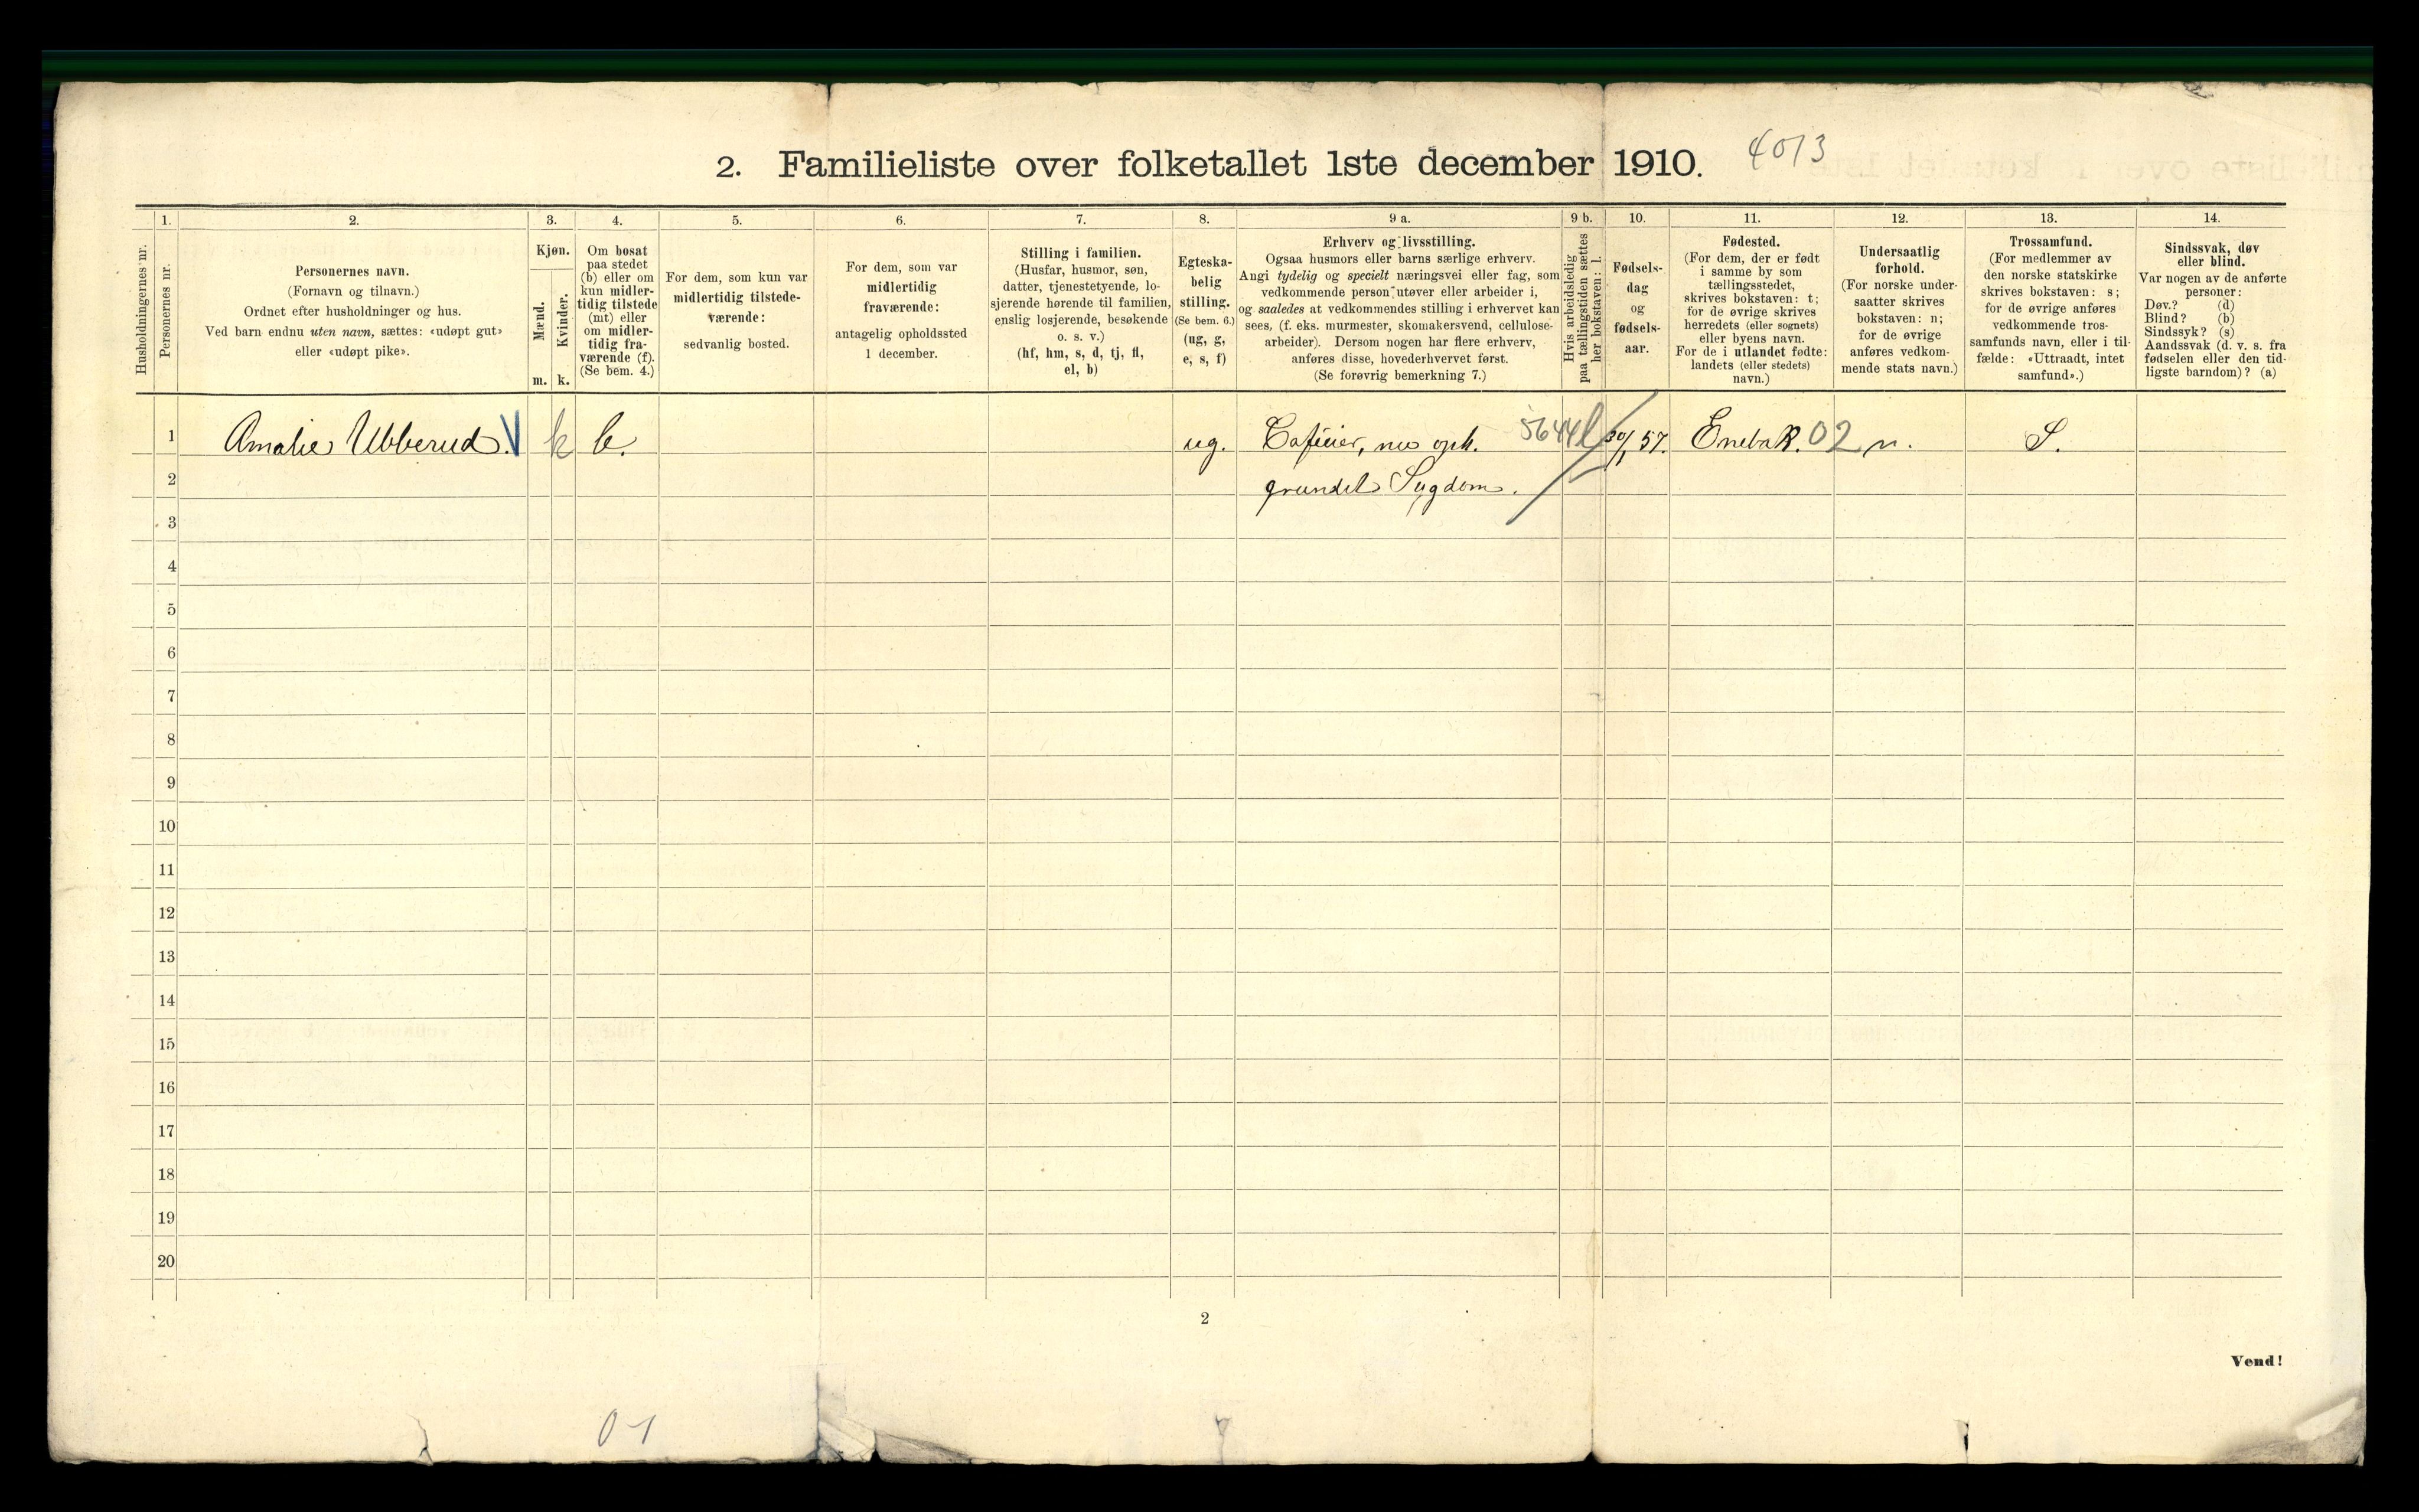 2. Familieliste over folketallet 1ste december 1910.
4013
Husholdningernes nr.
1.
Personernes nr.
2.
Personernes navn.
(Fornavn og tilnavn.)
Ordnet efter husholdninger og hus.
Ved barn endnu uten navn, sættes: «udøpt gut»
eller «udøpt pike».
3.
Kjøn.
Mænd.
Kvinder.
m. k.
4.
Om bosat
paa stedet
(b) eller om
kun midler-
tidig tilstede
(mt) eller
om midler-
tidig fra-
værende (f).
(Se bem. 4.)
5.
For dem, som kun var
midlertidig tilstede-
værende:
sedvanlig bosted.
6.
For dem, som var
midlertidig
fraværende:
antagelig opholdssted
1 december.
7.
Stilling i familien.
(Husfar, husmor, søn,
datter, tjenestetyende, lo-
sjerende hørende til familien,
enslig losjerende, besøkende
o. s. v.)
(hf, hm, s, d, tj, fl,
el, b)
8.
Egteska-
belig
stilling.
(Se bem. 6.)
(ug, g,
e, s, f)
9 a.
Erhverv og livsstilling.
Ogsaa husmors eller barns særlige erhverv.
Angi tydelig og specielt næringsvei eller fag, som
vedkommende person utøver eller arbeider i,
og saaledes at vedkommendes stilling i erhvervet kan
sees, (f. eks. murmester, skomakersvend, cellulose-
arbeider). Dersom nogen har flere erhverv,
anføres disse, hovederhvervet først.
(Se forøvrig bemerkning 7.)
9 b.
Hvis arbeidsledig
paa tællingstiden sættes
her bokstaven: l.
10.
Fødsels-
dag
og
fødsels-
aar.
11.
Fødested.
(For dem, der er født
i samme by som
tællingsstedet,
skrives bokstaven: t;
for de øvrige skrives
herredets (eller sognets)
eller byens navn.
For de i utlandet fødte:
landets (eller stedets)
navn.)
12.
Undersaatlig
forhold.
(For norske under-
saatter skrives
bokstaven: n;
for de øvrige
anføres vedkom-
mende stats navn.)
13.
Trossamfund.
(For medlemmer av
den norske statskirke
skrives bokstaven: s;
for de øvrige anføres
vedkommende tros-
samfunds navn, eller i til-
fælde: «Uttraadt, intet
samfund».)
14.
Sindssvak, døv
eller blind.
Var nogen av de anførte
personer:
Døv? (d)
Blind? (b)
Sindssyk? (s)
Aandssvak (d. v. s. fra
fødselen eller den tid-
ligste barndom)? (a)
1 Amalie Ubberud. V k b. ug. Caféeier, nu oph. 5644 l 30/1 57. Enebak. 02 n. S.
2 grundet Sygdom.
3
4
5
6
7
8
9
10
11
12
13
14
15
16
17
18
19
20
2
Vend!
01